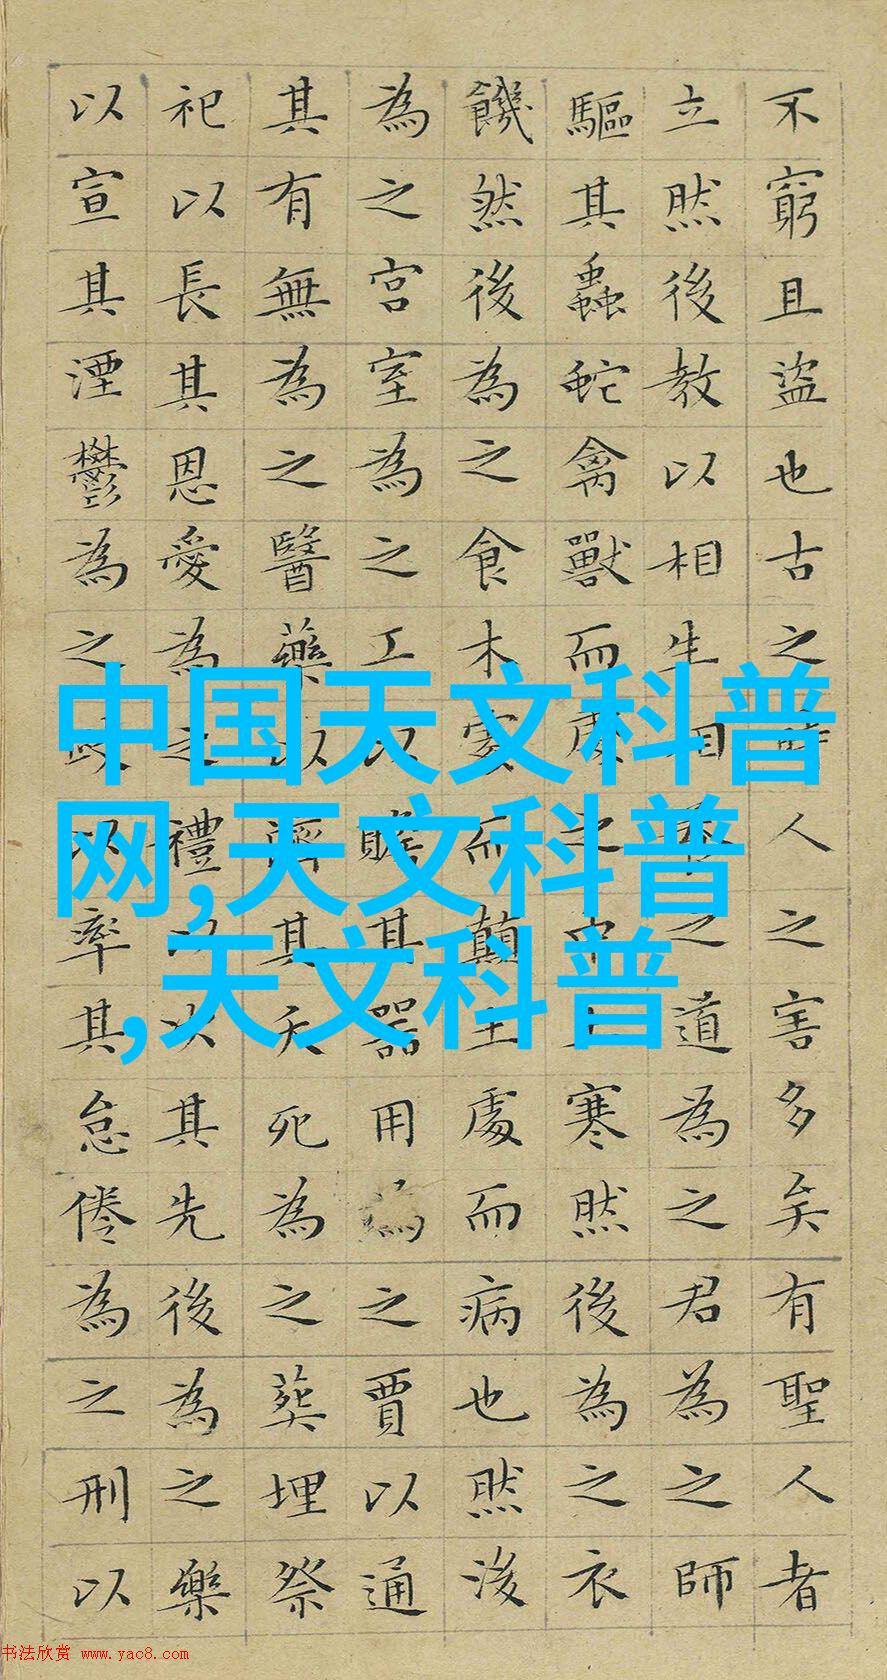 不窮且盜也古之時人之害多矣有聖人者
立然後教以相生相養之道為之君為之師
驅其蟲蛇禽獸而處之中土寒然後為之衣
饑然後為之食木處而顛土處而病也然後
為之宮室為之工以贍其器用為之賈以通
其有無為之醫藥以濟其夭死為之葬埋祭
祀以長其恩愛為之禮以次其先後為之樂
以宣其湮鬱為之政以率其怠倦為之刑以
中国天文科普
网,天文科普
,天文科普
书法欣赏 www.yac8.com